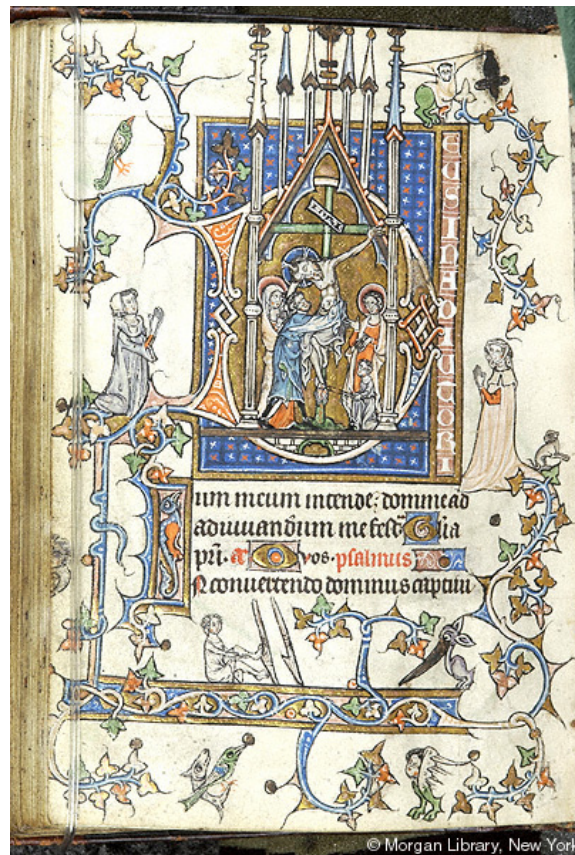 EUSINADIUTORI
um meum intende; domine ad
adiuuandum me fest Glia
pri. a O vos. psalmus
IN conuertendo dominus captiui
© Morgan Library, New York